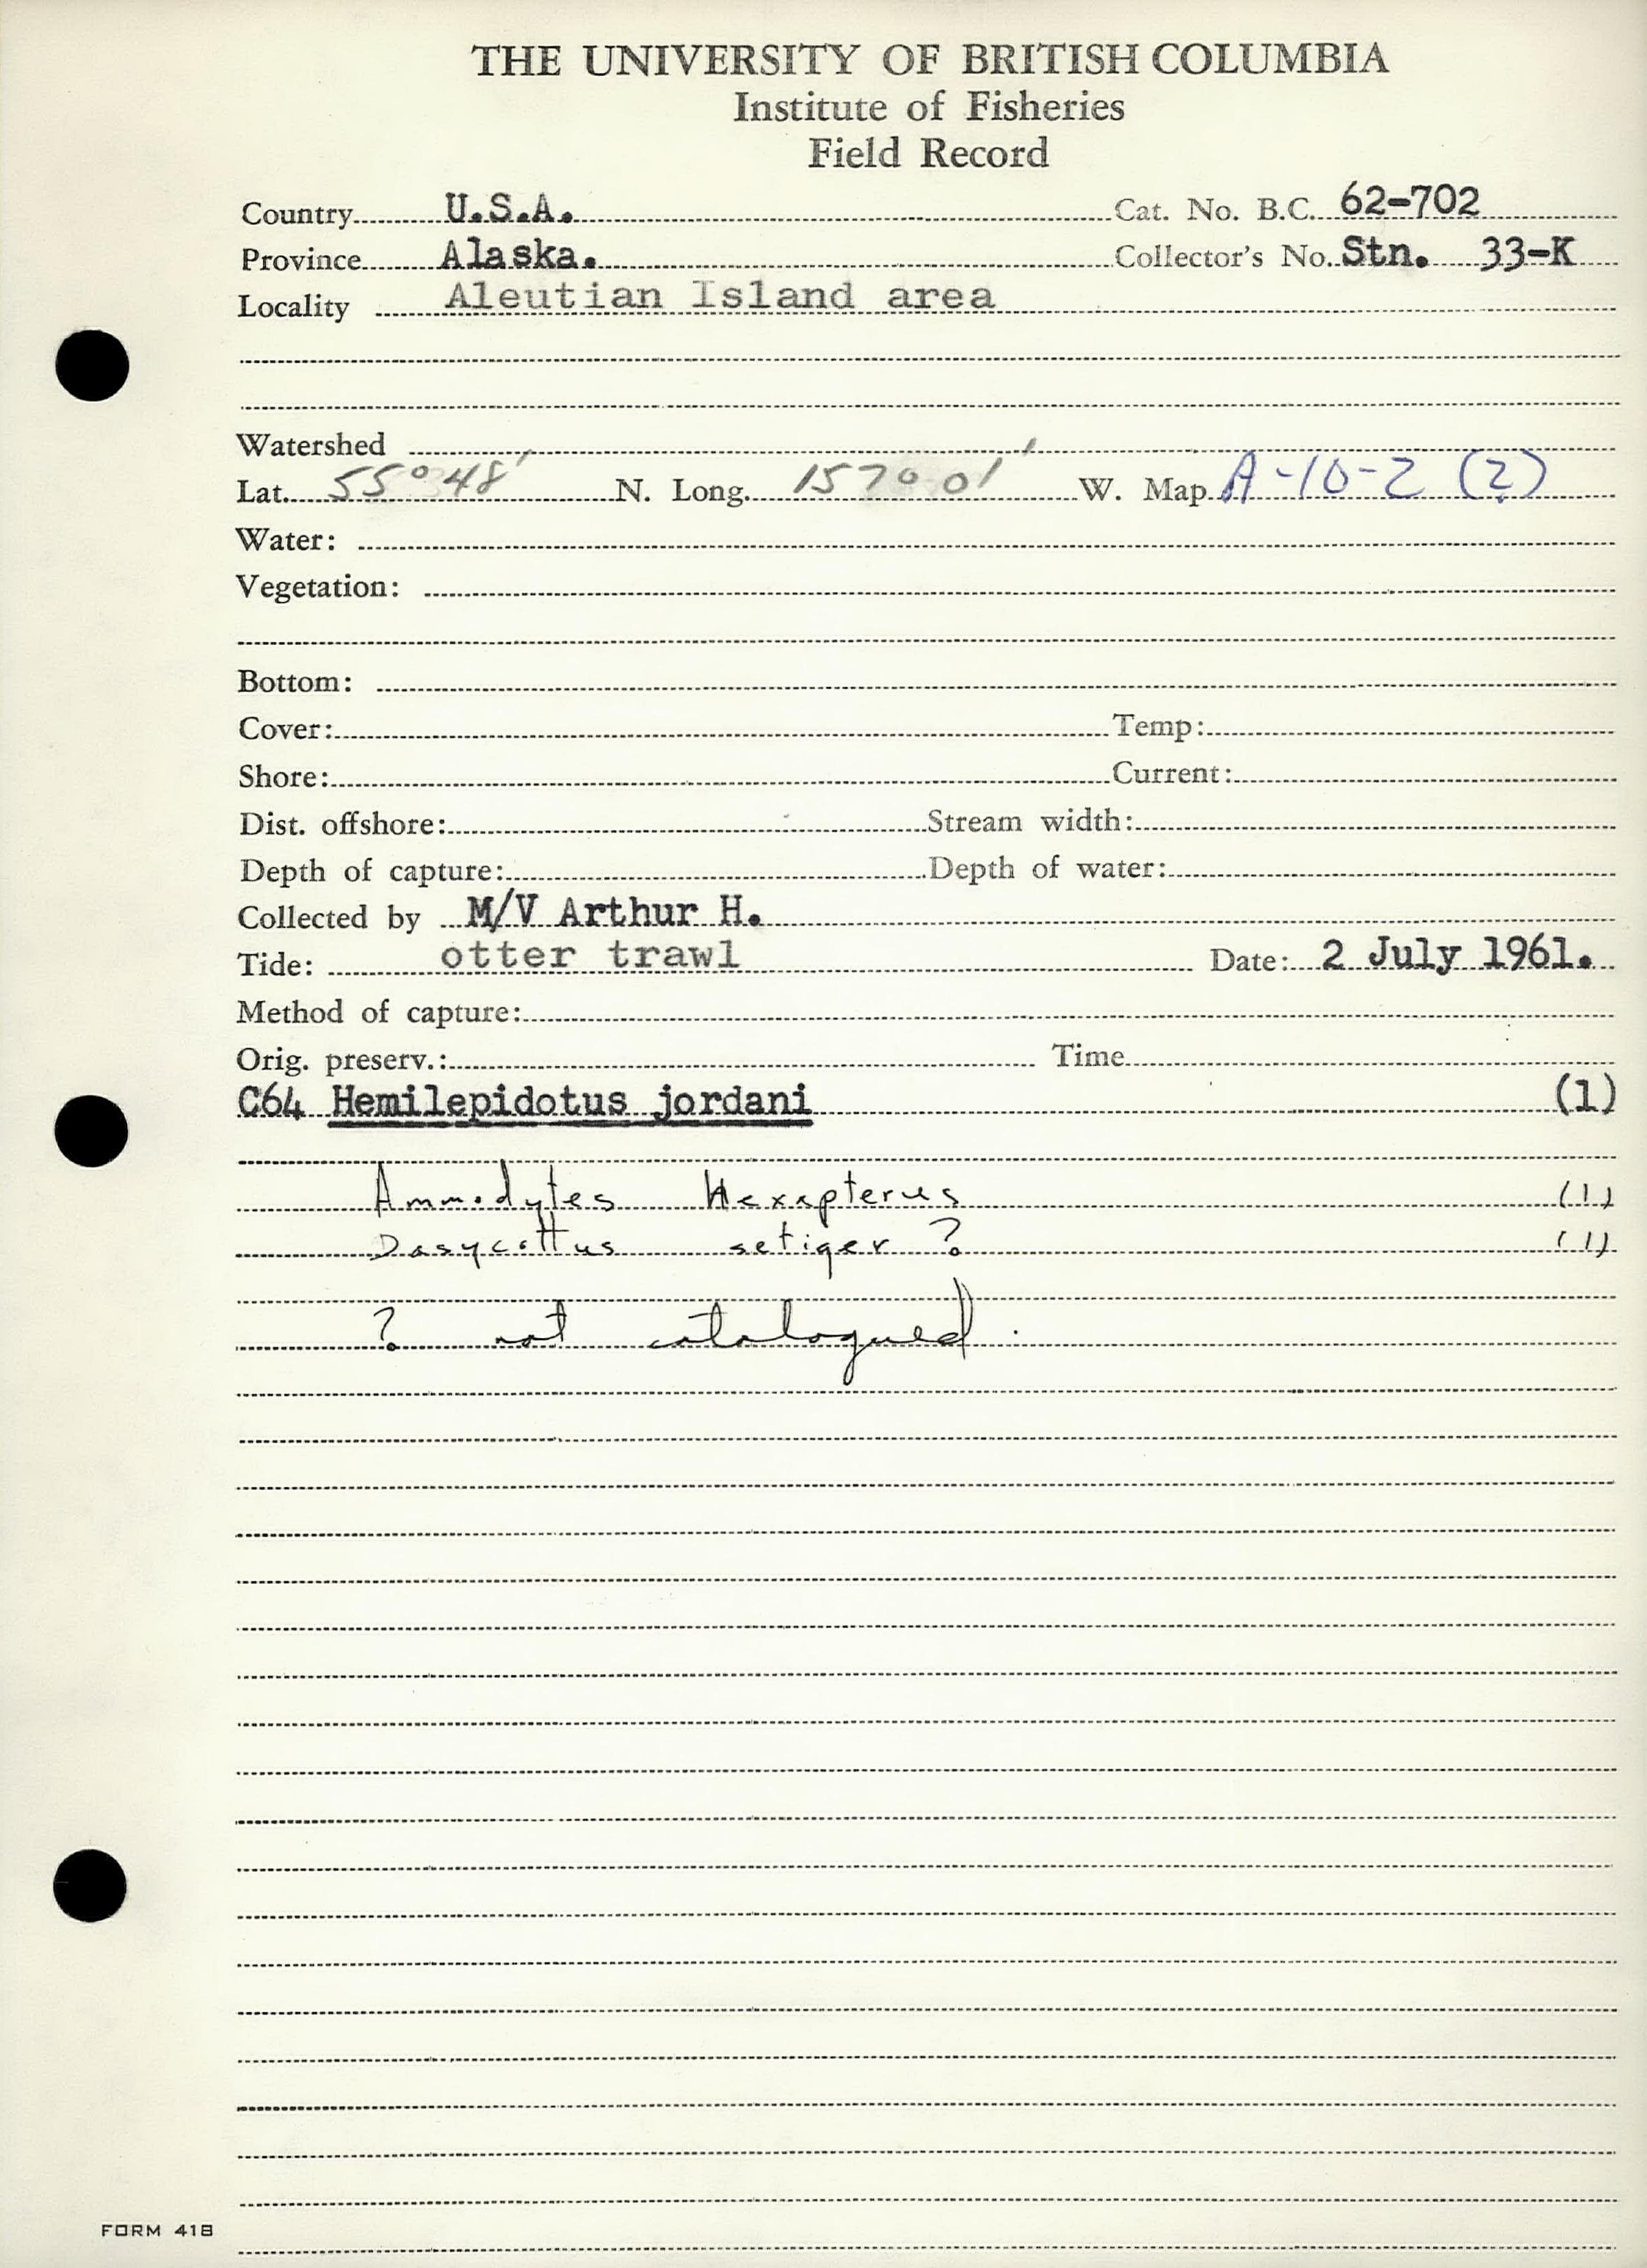 THE UNIVERSITY OF BRITISH COLUMBIA
Institute of Fisheries
Field Record
Country U.S.A. Cat. No. B.C. 62-702
Province Alaska. Collector's No. Stn. 33-K
Locality Aleutian Island area
Watershed
Lat. 55°48' N. Long. 157°01' W. Map A-10-2 (?)
Water:
Vegetation:
Bottom:
Cover: Temp:
Shore: Current:
Dist. offshore: Stream width:
Depth of capture: Depth of water:
Collected by M/V Arthur H.
Tide: otter trawl Date: 2 July 1961.
Method of capture:
Orig. preserv.: Time
C64 Hemilepidotus jordani (1)
Ammodytes Hexapterus (1)
Dasycottus setiger ? (1)
? not catalogued.
FORM 418